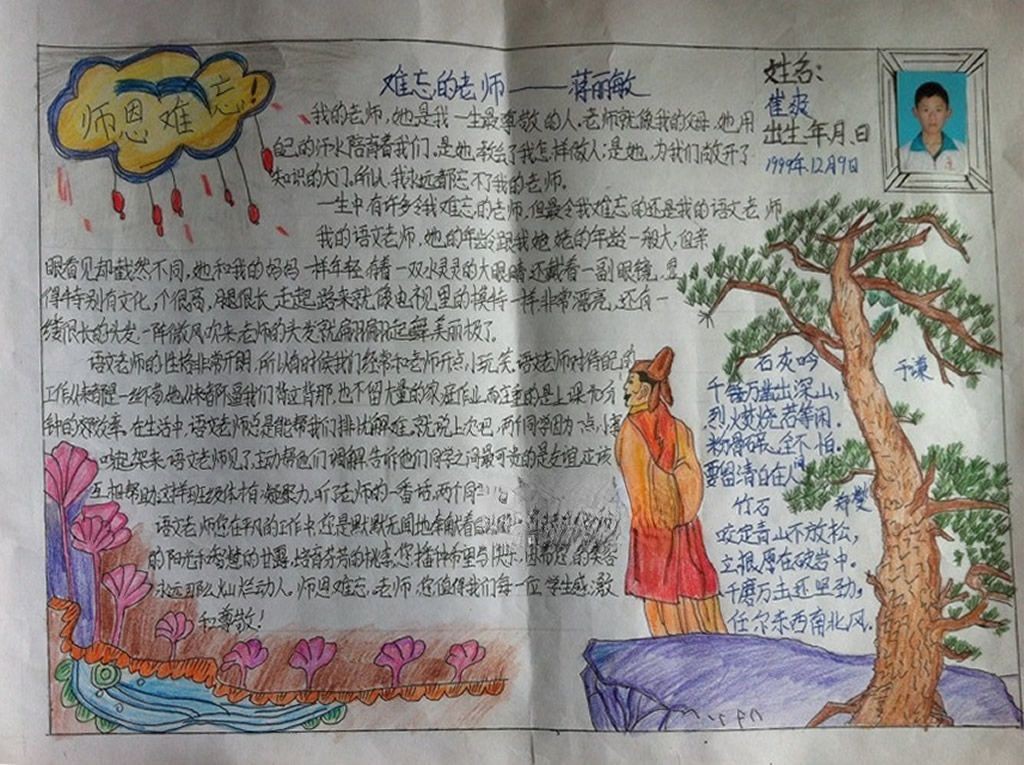 师恩难忘!
难忘的老师——蒋丽敏
姓名:
崔爽
出生年月日
1999年12月9日
我的老师,她是我一生最尊敬的人。老师就像我的父母,她用
自己的汗水陪育着我们,是她,教会了我怎样做人;是她,为我们敞开了
知识的大门。所以,我永远都忘不了我的老师。
一生中有许多令我难忘的老师,但最令我难忘的还是我的语文老师
我的语文老师,她的年龄跟我姥姥的年龄一般大,但亲
眼看见却截然不同,她和我的妈妈一样年轻,有着一双水灵灵的大眼睛,还戴着一副眼镜,显
得特别有文化,个很高,腿很长,走起路来就像电视里的模特一样,非常漂亮,还有一
缕很长的头发,一阵微风吹来,老师的头发就翩翩起舞,美丽极了。
语文老师的性格非常开朗,所以有时候我们经常和老师开点小玩笑。语文老师对待自己的
工作从都是一丝不苟,她从来都不逼我们背这背那,也不留大量的家庭作业,而注重的是上课40分
钟的效率。在生活中,语文老师总是能帮我们排忧解难。就说上次吧,两个同学因为一点小事
吵起架来,语文老师见了,主动帮他们调解,告诉他们同学之间最可贵的是友谊,应该
互相帮助,这样班级体才有凝聚力。听了老师的一番话,两个同
语文老师,您在平凡的工作中,总是默默无闻地奉献着自己
的阳光和智慧的甘露,培育芬芳的桃李。您播种希望与快乐,因着您,的笑容
永远那么灿烂动人。师恩难忘,老师,您值得我们每一位学生感激
和尊敬!
石灰吟
于谦
千锤万凿出深山,
烈火焚烧若等闲。
粉骨碎 全不怕。
要留清白在人间
竹石
郑燮
咬定青山不放松,
立根原在破岩中。
千磨万击还坚劲,
任尔东西南北风。